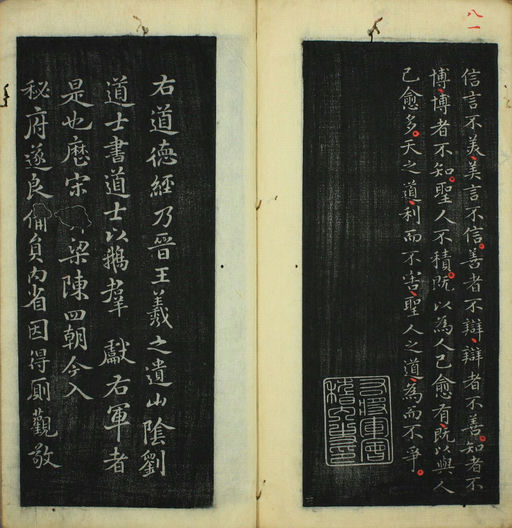 八一
信言不美美言不信善者不辯辯者不善知者不
博博者不知聖人不積既以為人己愈有既以與人
己愈多天之道利而不害聖人之道為而不爭
右道德經乃晉王羲之遺山陰劉
道士書道士以鵝群獻右軍者
是也歷宋梁陳四朝今入
秘府遂良備員內省因得廁觀敬